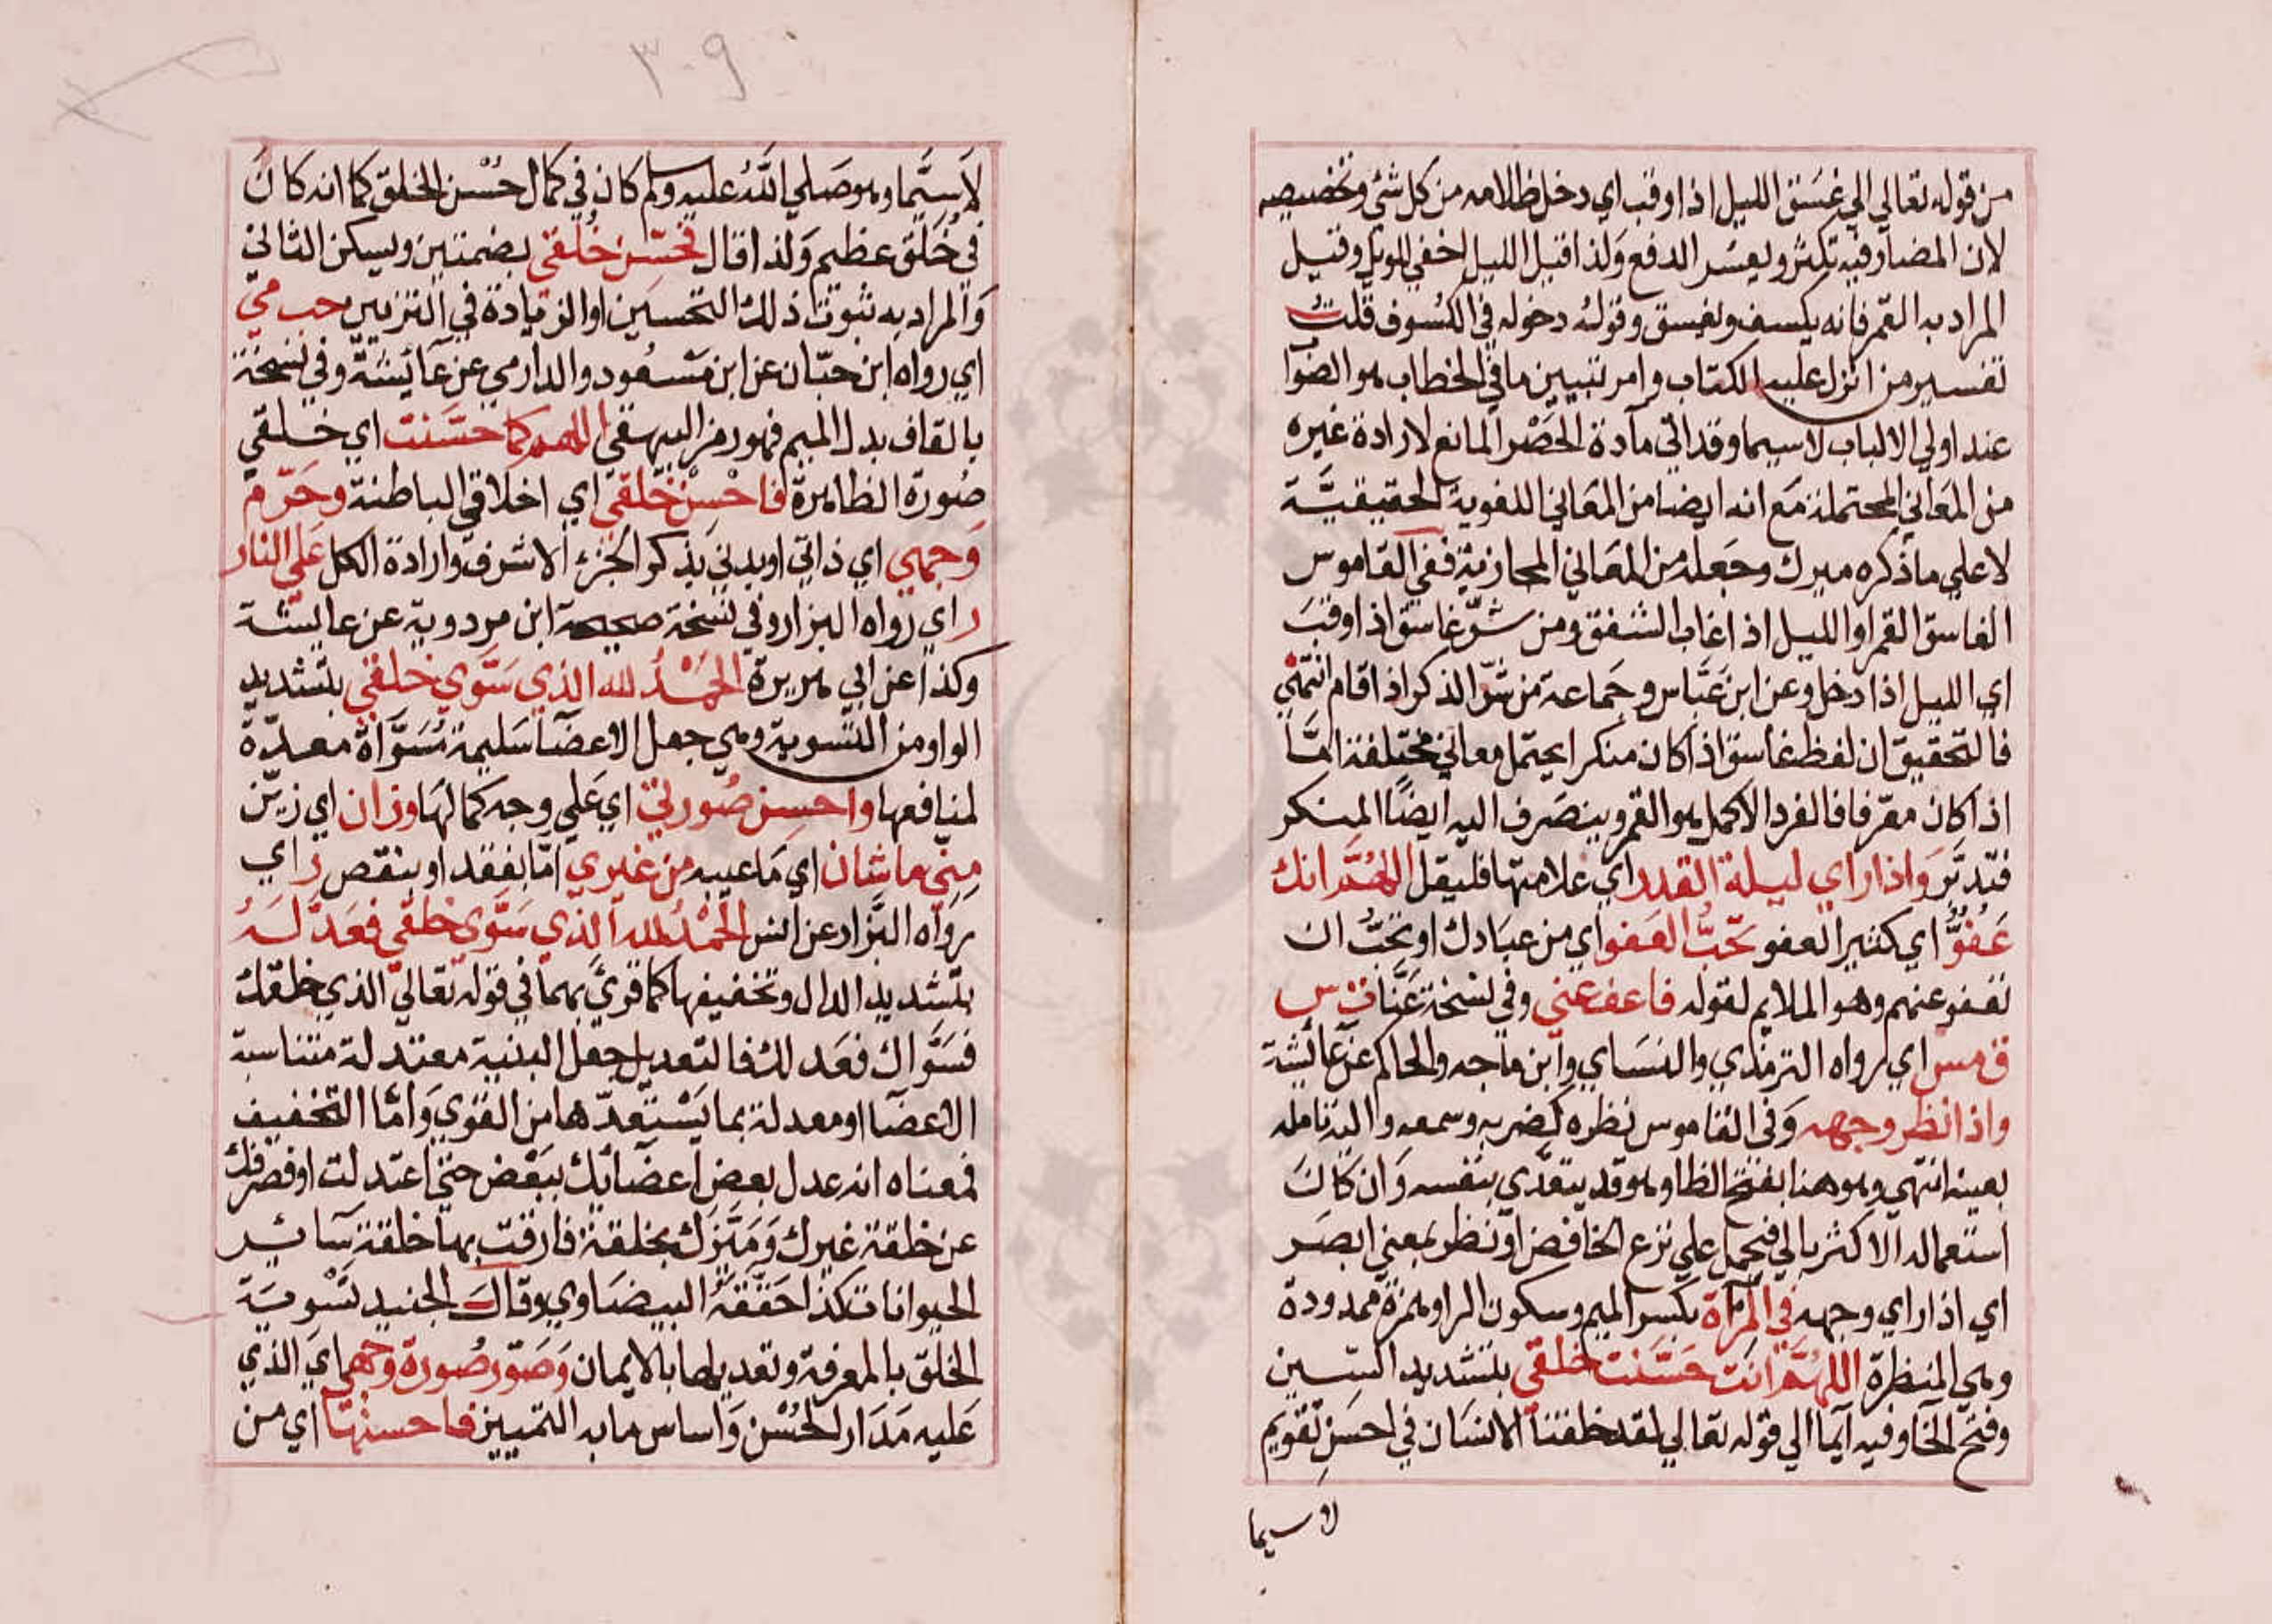 من قوله تعالي الي غسق الليل اذا وقب اي دخل ظلامه من كل شئ وتخصيصه
لان المضار فيه تكثر ويعسر الدفع ولذا قيل الليل اخفي للويل وقيل
المراد به القمر فانه يكسف ويغسق وقوله دخوله في الكسوف قلت
تفسير من انزل عليه الكتاب وامر بتبيين ما في الخطاب هو الصواب
عند اولي الالباب لا سيما وقد اتي مآدة الحصر المانع لارادة غيره
من المعاني المحتملة مع انه ايضا من المعاني اللغوية الحقيقيّة
لا علي ما ذكره ميرك وجعله من المعاني المجازية ففي القاموس
الغاسق القمر او الليل اذا غاب الشفق ومن شرّ غاسق اذا وقب
اي الليل اذا دخل وعن ابن عبّاس وجماعة من شرّ الذكر اذا قام انتهي
فالتحقيق ان لفظ غاسق اذا كان منكرا يحتمل معاني مختلفة امّا
اذا كان معرّفا فالفرد الاكمل هو القمر وينصرف اليه ايضًا المنكر
فتدبّر واذا راي ليلة القدر اي علامتها فليقل اللهمّ انك
عفوٌّ اي كثير العفو تحبّ العفو اي من عبادك او تحبّ ان
تعفو عنهم وهو الملايم لقوله فاعف عني وفي نسخة عنّا ت س
ق مس اي رواه الترمذي والنساي وابن ماجه والحاكم عن عائشة
واذا نظر وجهه وفي القاموس نظره كضربه وسمعه واليه تامله
بعينه انتهي وهو هنا بفتح الظا وهو قد يتعدّي بنفسه وان كان
استعماله الاكثر بالي فيحمل علي نزع الخافض او نظر بمعني ابصر
اي اذا راي وجهه في المرآة بكسر الميم وسكون الرا وهمزة ممدودة
وهي المنظرة اللهمّ انت حسّنت خلقي بتشديد السين
وفتح الخا وفيه آيما الي قوله تعالي لقد خلقنا الانسان في احسن تقويم
لا سيما
٣٠٩
لا سيّما وهو صلي اللّه عليه وسلم كان في كمال حُسْن الخلق كما انه كان
في خُلق عظيم ولذا قال فحسّن خُلُقي بضمتين ويسكن الثاني
والمراد به ثبوت ذلك التحسين او الزيادة في التزيين حب مي
اي رواه ابن حبّان عن ابن مسعود والدارمي عن عآئشة وفي نسخة
بالقاف بدل الميم فهو رمز البيهقي اللهم كما حسّنت اي خلقي
صُورة الظاهرة فاحْسِن خُلقي اي اخلاقي الباطنة وحرّم
وجهي اي ذاتي او بدني بذكر الجزء الاشرف وارادة الكل علي النار
ر اي رواه البزار وفي نسخة صحيحة ابن مردوية عن عايشة
وكذا عن ابي هريرة الحمدُ لله الذي سوّي خلقي بتشديد
الواو من التسوية وهي جعل الاعضا سليمة مُسوّاة معدّة
لمنافعها واحسن صُورتي اي علي وجه كمالها وزان اي زيّن
منّي ما شان اي ما عيبه من غيري امّا بفقد او بنقص ر اي
رواه البزّار عن انس الحمْد لله الذي سوّي خلقي فعدّله
بتشديد الدال وتخفيفها كما قرئ بهما في قوله تعالي الذي خلقك
فسوّاك فعدلك فالتعديل جعل البنية معتدلة متناسبة
الاعضا او معدلة بما يستعدّها من القوي وامّا التخفيف
فمعناه انه عدل بعض اعضائك ببعض حتي اعتدلت او فصرفك
عن خلقة غيرك وميّزك بخلقة فارقت بها خلقة سائر
الحيوانات كذا حققه البيضاوي وقال الجنيد تسْوية
الخلق بالمعرفة وتعديلها بالايمان وصوّر صُورة وجهي اي الذي
عليه مدار الحُسْن واساس ما به التمييز فاحسنها اي من